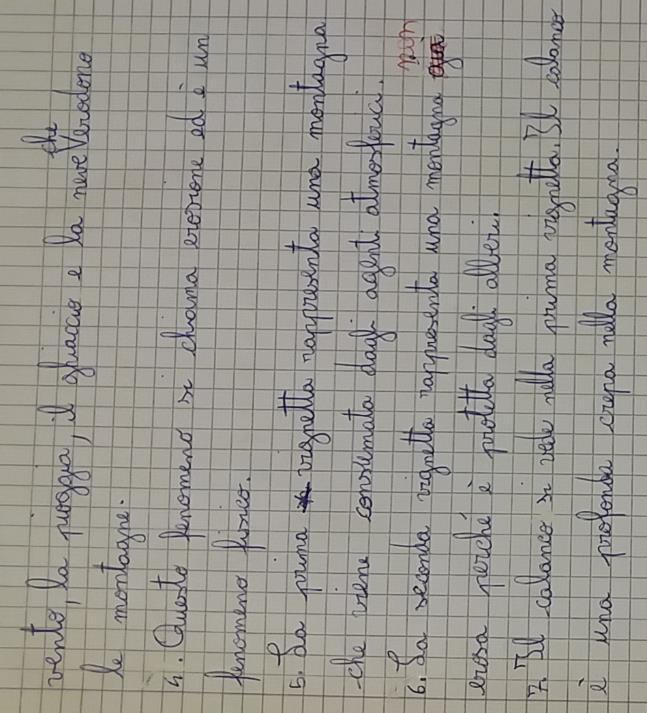 vento, la pioggia, il ghiaccio e la neve che erodono
le montagne.
4. Questo fenomeno si chiama erosione ed è un
fenomeno fisico.
5. La prima vignetta rappresenta una montagna
che viene consumata dagli agenti atmosferici.
6. La seconda vignetta rappresenta una montagna non
erosa perché è protetta dagli alberi.
7. Il calanco si vede nella prima vignetta. Il calanco
è una profonda crepa nella montagna.